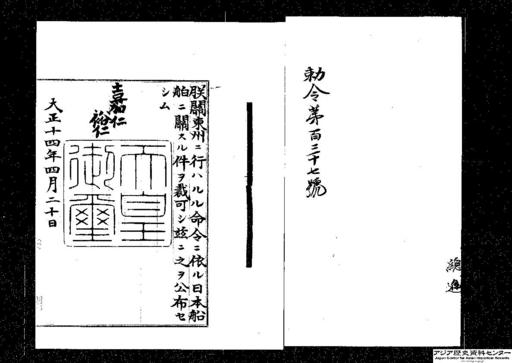 勅令第百三十七號
朕關東州ニ行ハルル命令ニ依ル日本船
舶ニ關スル件ヲ裁可シ玆ニ之ヲ公布セ
シム
嘉仁
裕仁
天皇
御璽
大正十四年四月二十日
アジア歴史資料センター
Japan Center for Asian Historical Records